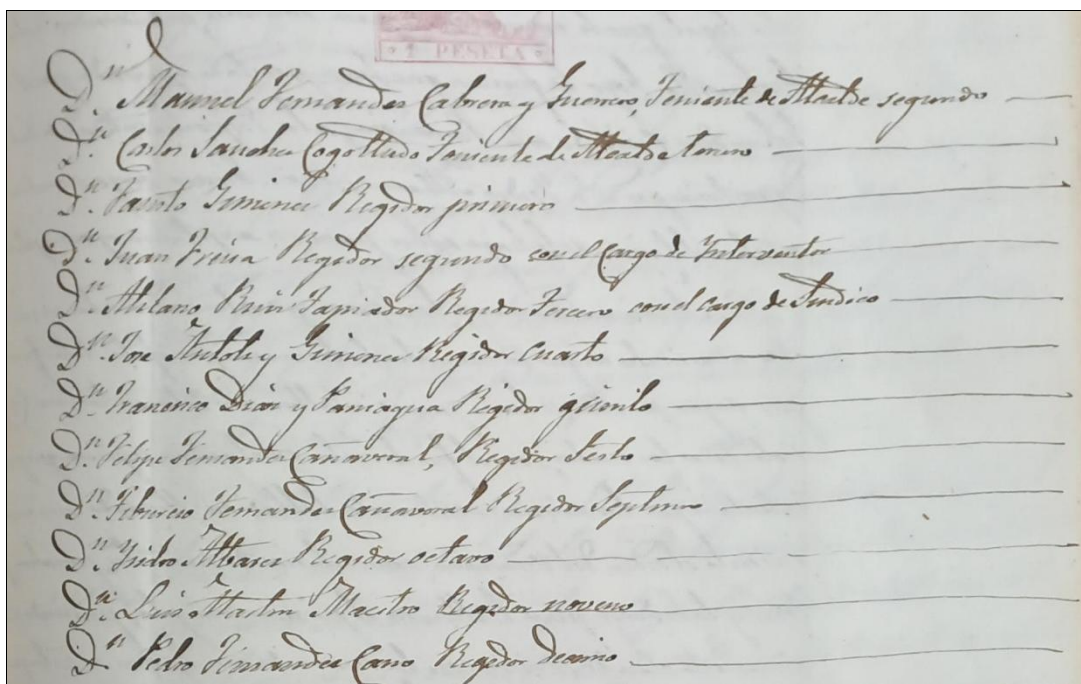 1 PESETA
Dn. Manuel Fernandez Cabrera y Guerrero, Teniente de Alcalde segundo
Dn. Carlos Sanchez Cogolludo Teniente de Alcalde tercero
Dn. Fausto Gimenez Regidor primero
Dn. Juan Regidor segundo con el Cargo de Interventor
Dn. Ruiz Tapiador Regidor Tercero con el cargo de Sindico
Dn. Jose y Gimenez Regidor Cuarto
Dn. Francisco Diaz y Paniagua Regidor quinto
Dn. Felipe Fernandez Cañaveral, Regidor Sesto
Dn. Tiburcio Fernandez Cañaveral Regidor Septimo
Dn. Isidro Albares Regidor octavo
Dn. Luis Martin Maestro Regidor noveno
Dn. Pedro Fernandez Cano Regidor decimo